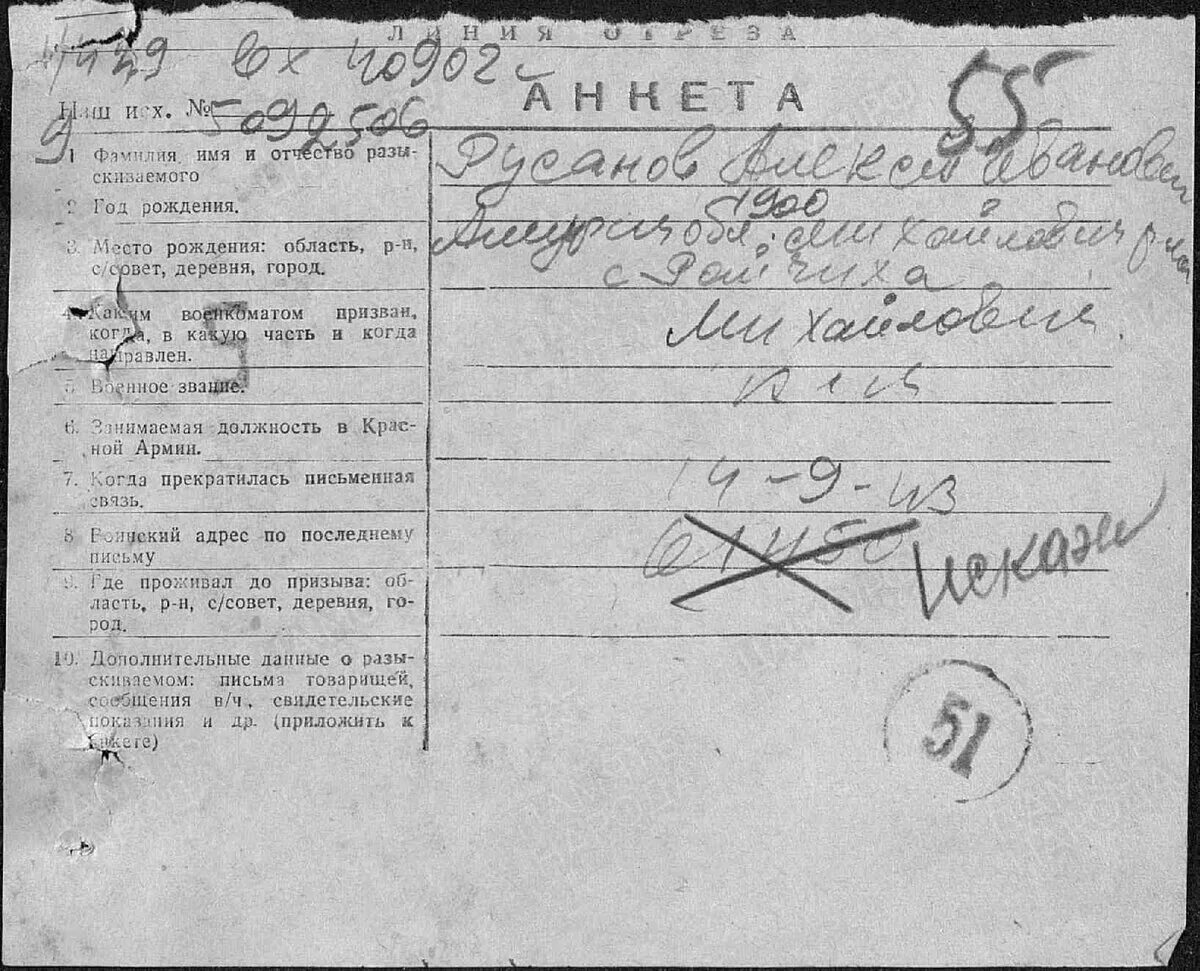 ЛИНИЯ ОТРЕЗА
вх 40902
АНКЕТА
55
Наш исх. № 5092506
9
1 Фамилия, имя и отчество разы-
скиваемого
Русанов Алексей Иванович
2 Год рождения.
1900
3. Место рождения: область, р-н,
с/совет, деревня, город.
Амурск обл. Михайлович р-на
с Райчиха
4. Каким военкоматом призван,
когда, в какую часть и когда
направлен.
Михайлович
5. Военное звание.
к-ц
6. Занимаемая должность в Крас-
ной Армии.
7. Когда прекратилась письменная
связь.
14-9-43
8 Воинский адрес по последнему
письму
61450
искажен
9. Где проживал до призыва: об-
ласть, р-н, с/совет, деревня, го-
род.
10. Дополнительные данные о разы-
скиваемом: письма товарищей,
сообщения в/ч, свидетельские
показания и др. (приложить к
анкете)
51